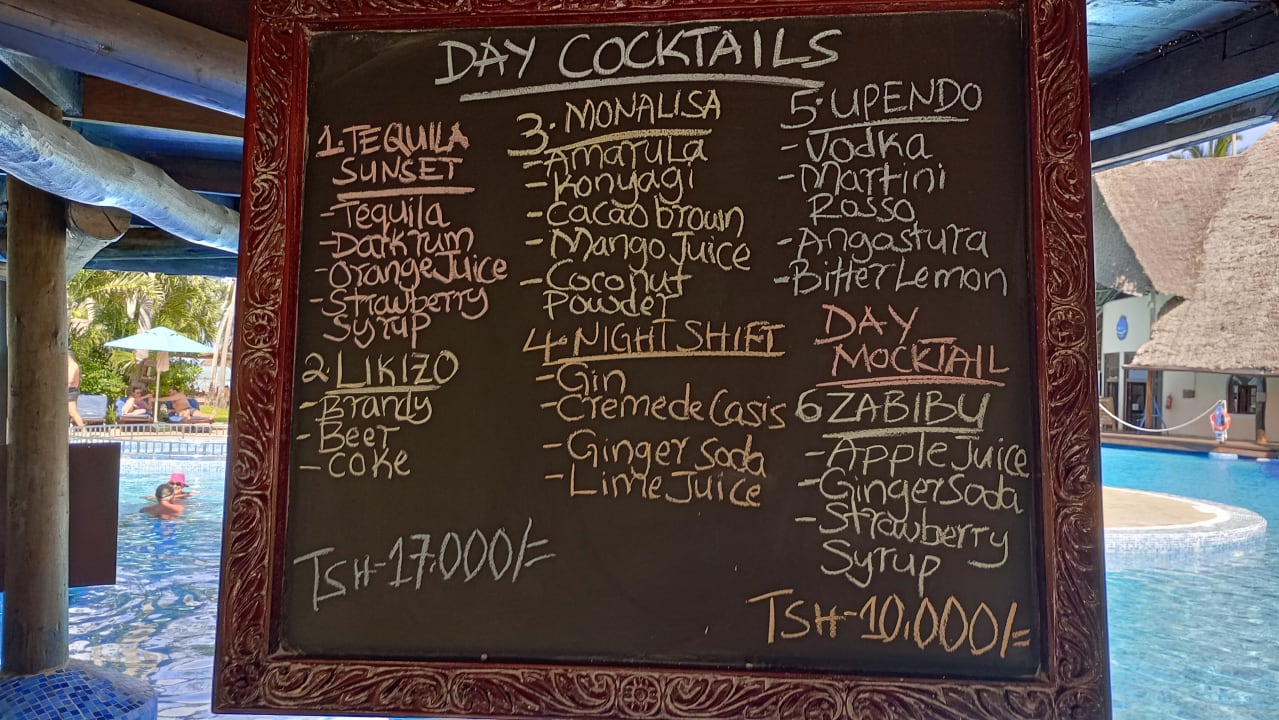 DAY COCKTAILS
1.TEQUILA
SUNSET
-Tequila
-Dark rum
-Orange Juice
-Strawberry
Syrup
2.LIKIZO
-Brandy
-Beer
-Coke
TSH-17.000/=
3.MONALISA
-Amarula
-Konyagi
-Cacao brown
-Mango Juice
-Coconut
Powder
4.NIGHT SHIFT
-Gin
-Creme de Casis
-Ginger Soda
-Lime Juice
5.UPENDO
-Vodka
-Martini
Rosso
-Angostura
-Bitter Lemon
DAY
MOCKTAIL
6 ZABIBU
-Apple Juice
-Ginger Soda
-Strawberry
Syrup
TSH-10,000/=